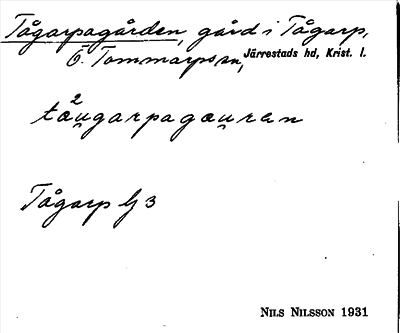 Tågarpagården, gård i Tågarp,
Ö. Tommarps sn, Järrestads hd, Krist. l.
2
tæu̯garpagæu̯ran
Tågarp
3
NILS NILSSON 1931